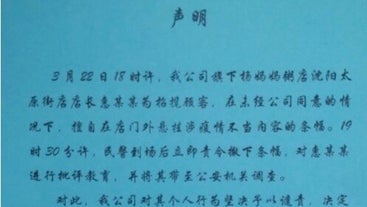 声明
3月22日18时许，我公司旗下杨妈妈粥店沈阳太
原街店店长惠某某为招揽顾客，在未经公司同意的情
况下，擅自在店门外悬挂涉疫情不当内容的条幅。19
时30分许，民警到场后立即责令撤下条幅，对惠某某
进行批评教育，并将其带至公安机关调查。
对此，我公司对其个人行为坚决予以谴责，决定